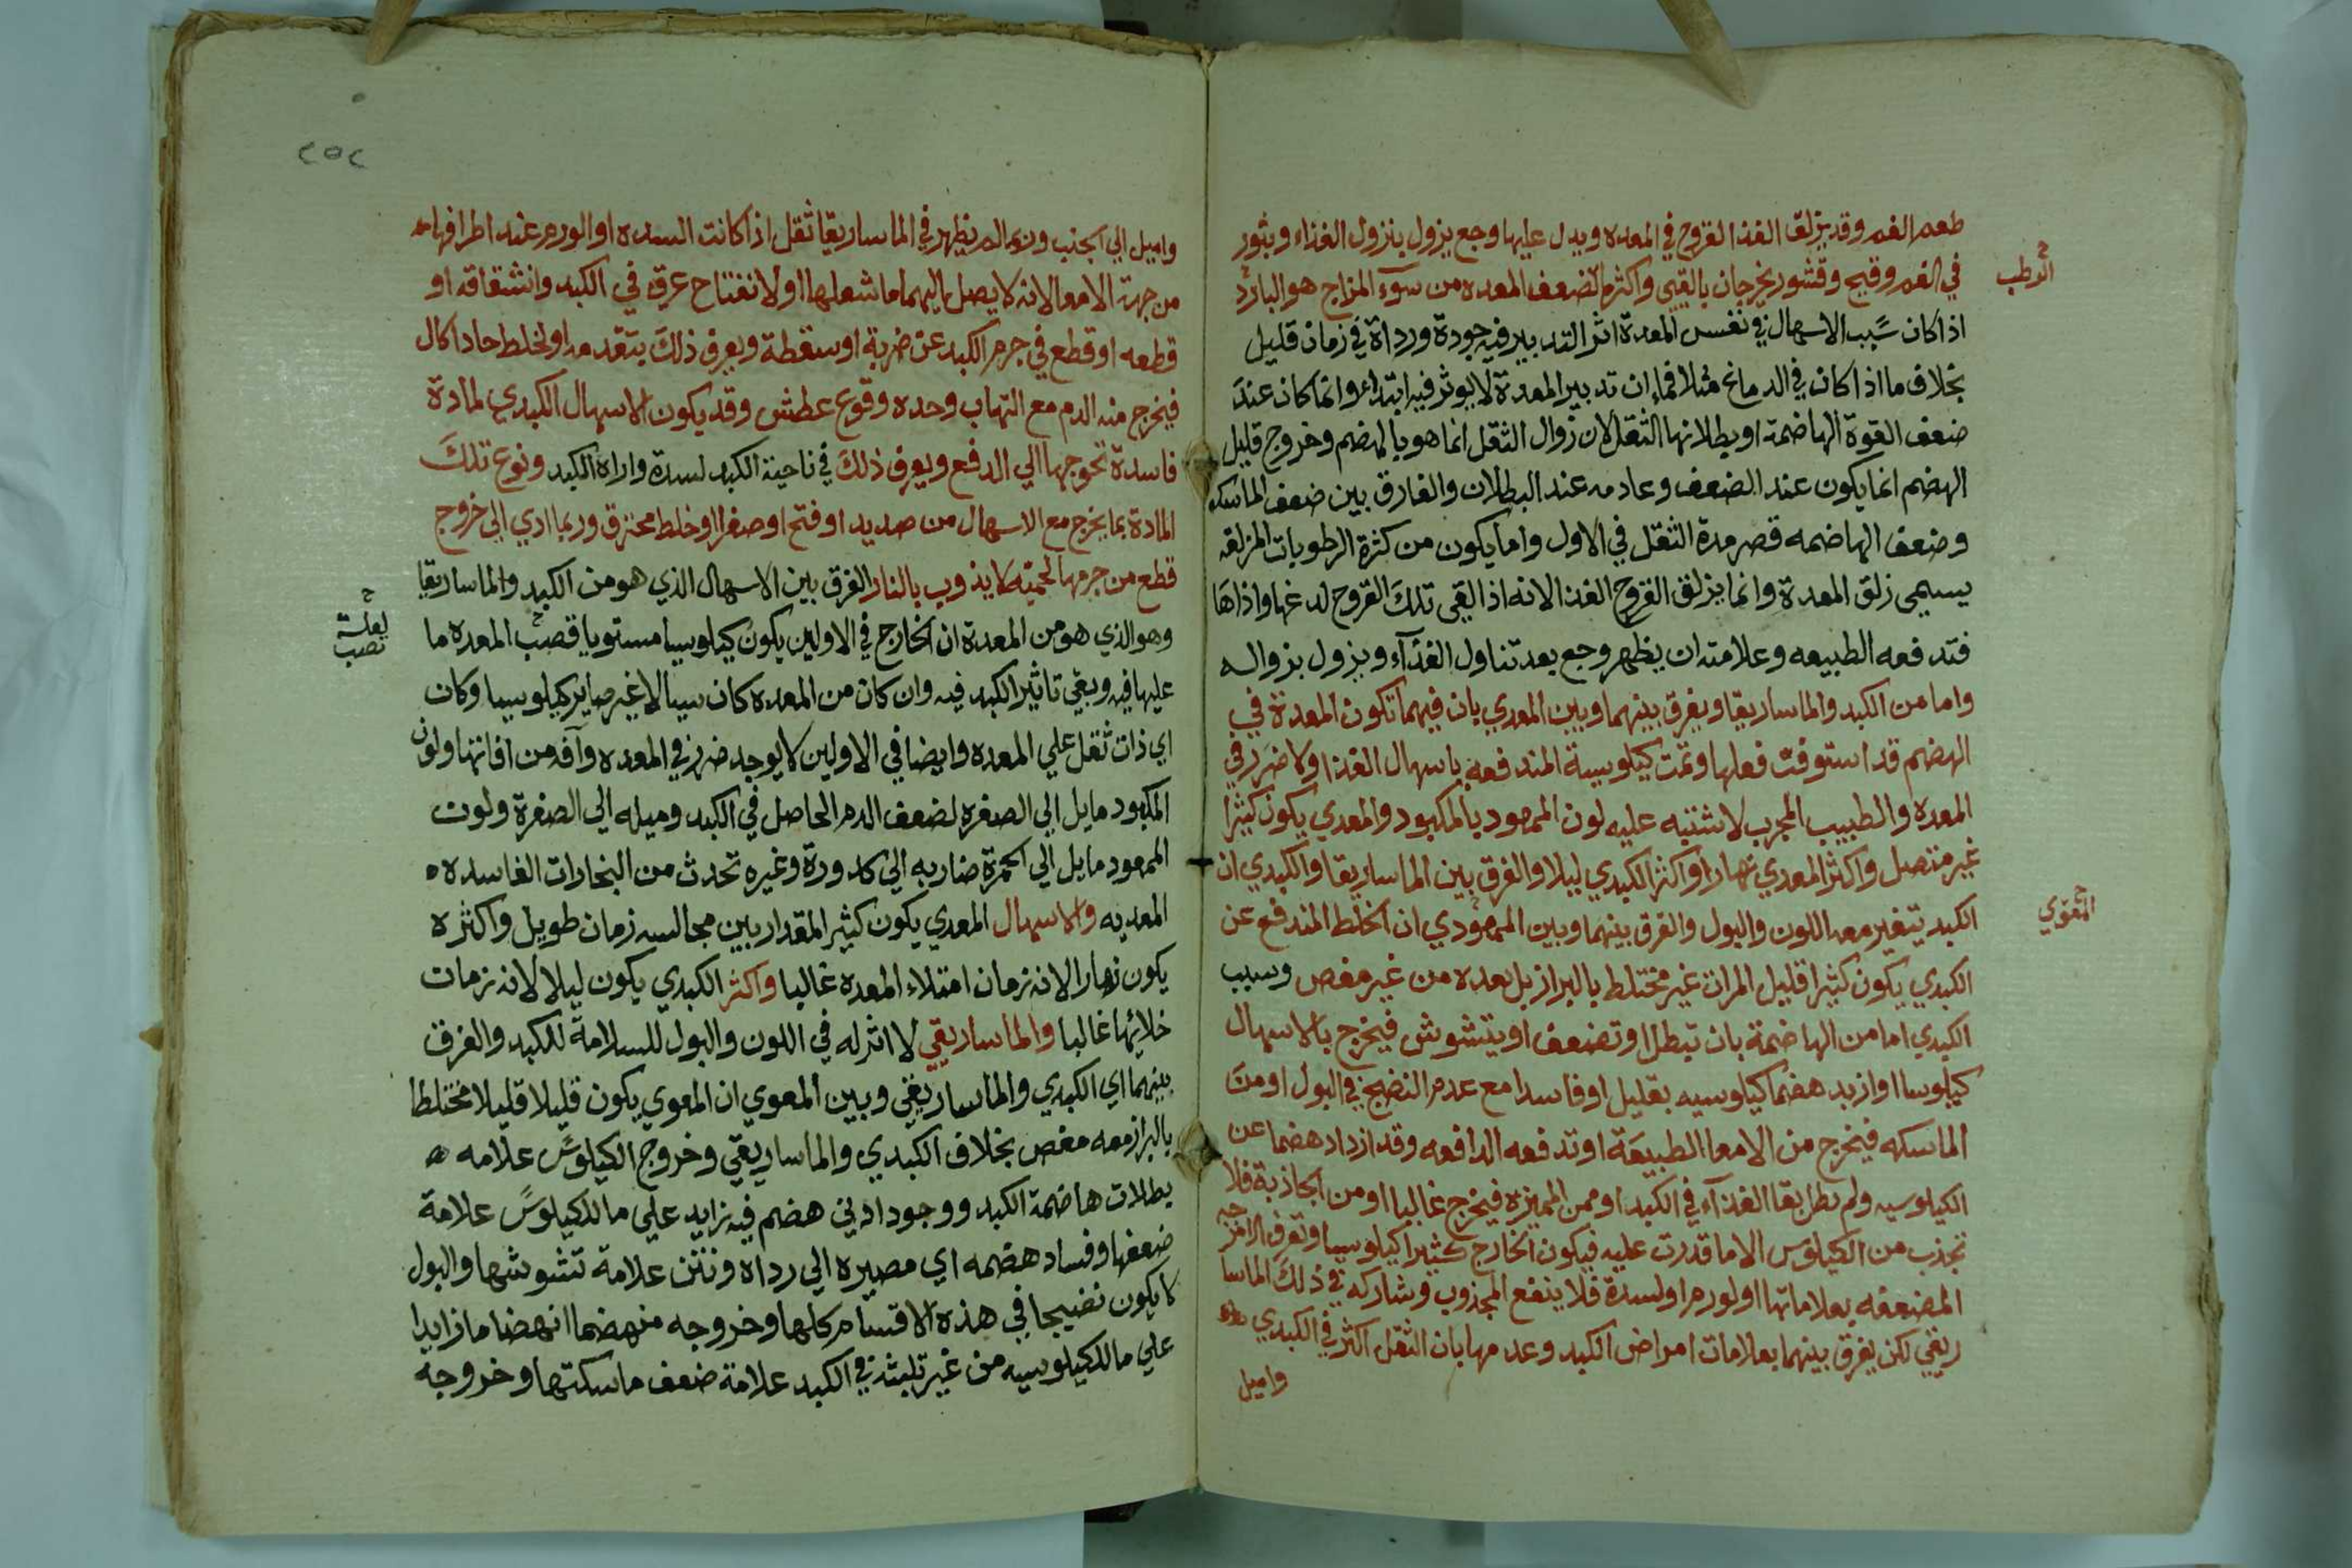 طعم الفم وقد يزلق الغذا القروح في المعده ويدل عليها وجع يزول بنزول الغذاء وبثور
في الفم وقيح وقشور يخرجان بالقيى واكثر الضعف المعده من سوء المزاج هو البارد
الرطب
اذا كان سبب الاسهال في نفس المعدة اثر التدبير فيه جودة ورداة في زمان قليل
بخلاف ما اذا كان في الدماغ مثلا فان تدبير المعدة لا يوثر فيه ابتداء وانما كان عند
ضعف القوة الهاضمة او بطلانها الثقل لان زوال الثقل انما هو بالهضم وخروج قليل
الهضم انما يكون عند الضعف وعادمه عند البطلان والفارق بين ضعف الماسكه
وضعف الهاضمه قصر مدة الثقل في الاول واما يكون من كثرة الرطوبات المزلقه
يسمى زلق المعدة وانما يزلق القروح الغذا لانه اذا لقى تلك القروح لدغها واذاها
فتدفعه الطبيعه وعلامته ان يظهر وجع بعد تناول الغذآء ويزول بزواله
واما من الكبد والماساريقا ويفرق بينهما وبين المعدي بان فيهما تكون المعدة في
الهضم قد استوفت فعلها وتمت كيلوسية المندفعه باسهال الغذا ولا ضرر في
المعده والطبيب المجرب لا تشتبه عليه لون الممعود بالمكبود والمعدي يكون كثيرا
غير متصل واكثر المعدي نهارا واكثر الكبدي ليلا والفرق بين الماساريقا والكبدي ان
الكبد يتغير معه اللون والبول والفرق بينهما وبين الممعودي ان الخلط المندفع عن
المعوي
الكبدي يكون كثيرا قليل المرات غير مختلط بالبراز بل بعده من غير مغص وسبب
الكبدي اما من الهاضمة بان تبطل او تضعف او يتشوش فيخرج بالاسهال
كيلوسا او ازيد هضما كيلوسيه بقليل او فاسدا مع عدم النضج في البول او من
الماسكه فيخرج من الامعا الطبيعة او تدفعه الدافعه وقد ازداد هضما عن
الكيلوسيه ولم يطل بقا الغذآء في الكبد او من المميزه فيخرج غالبا او من الجاذبة فلا
تجذب من الكيلوس الا ما قدرت عليه فيكون الخارج كثيرا كيلوسيا وتعرف الامزجه
المضعفه بعلاماتها او لورم او لسدة فلا ينفع المجذوب وشاركه في ذلك الماسا
ريقي لكن يفرق بينهما بعلامات امراض الكبد وعدمها بان الثقل اكثر في الكبدي
واميل
٢٥٢
واميل الي الجنب ويظهر في الماساريقا ثقل اذا كانت السده او الورم عند اطرافها
من جهة الامعا لانه لا يصل اليهما ما شعلها او لانفتاح عرق في الكبد وانشقاقه او
قطعه او قطع في جرم الكبد عن ضربة او سقطة ويعرف ذلك بتقدمه او لخلط حاد اكال
فيخرج منه الدم مع التهاب وحده وقوع عطش وقد يكون الاسهال الكبدي لمادة
فاسدة تحوجها الي الدفع ويعرف ذلك في ناحية الكبد لسدة واراة الكبد ونوع تلك
المادة بما يخرج مع الاسهال من صديد او فتح او صفرا او خلط محترق وربما ادي الي خروج
قطع من جرمها لحميته لا يذوب بالنار الفرق بين الاسهال الذي هو من الكبد والماساريقا
وهو الذي هو من المعدة ان الخارج في الاولين يكون كيلوسيا مستويا قصب المعده ما
لعله
نصب
عليها فيه وبقي تاثير الكبد فيه وان كان من المعده كان سيالا غير صاير كيلوسيا وكان
اي ذات ثقل علي المعده وايضا في الاولين لا يوجد ضرر في المعده وآفه من افاتها ولون
المكبود مايل الي الصفره لضعف الدم الحاصل في الكبد وميله الي الصفرة ولون
الممعود مايل الي الحمرة ضاربه الي كدورة وغيره تحدث من البخارات الفاسده
المعديه والاسهال المعدي يكون كثير المقدار بين مجالسه زمان طويل واكثره
يكون نهارا لانه زمان امتلاء المعده غالبا واكثر الكبدي يكون ليلا لانه زمان
خلائها غالبا والماساريقي لا اثر له في اللون والبول للسلامة للكبد والفرق
بينهما اي الكبدي والماساريقي وبين المعوي ان المعوي يكون قليلا قليلا مختلطا
بالبراز معه مغص بخلاف الكبدي والماساريقي وخروج الكيلوس علامه
بطلان هاضمة الكبد ووجود ادني هضم فيه زايد علي ما للكيلوس علامة
ضعفها وفساد هضمه اي مصيره الي رداه ونتن علامة تشوشها والبول
لا يكون نضيجا في هذه الاقسام كلها وخروجه منهضما انهضاما زايدا
علي ما للكيلوسيه من غير تلبثه في الكبد علامة ضعف ماسكتها وخروجه